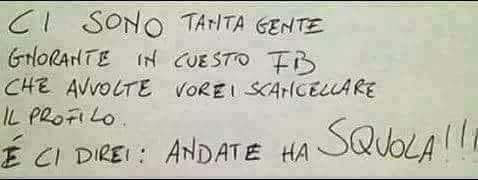 CI SONO TANTA GENTE
GNORANTE IN CUESTO FB
CHE AVVOLTE VOREI SCANCELLARE
IL PROFILO.
É CI DIREI: ANDATE HA SQUOLA!!!